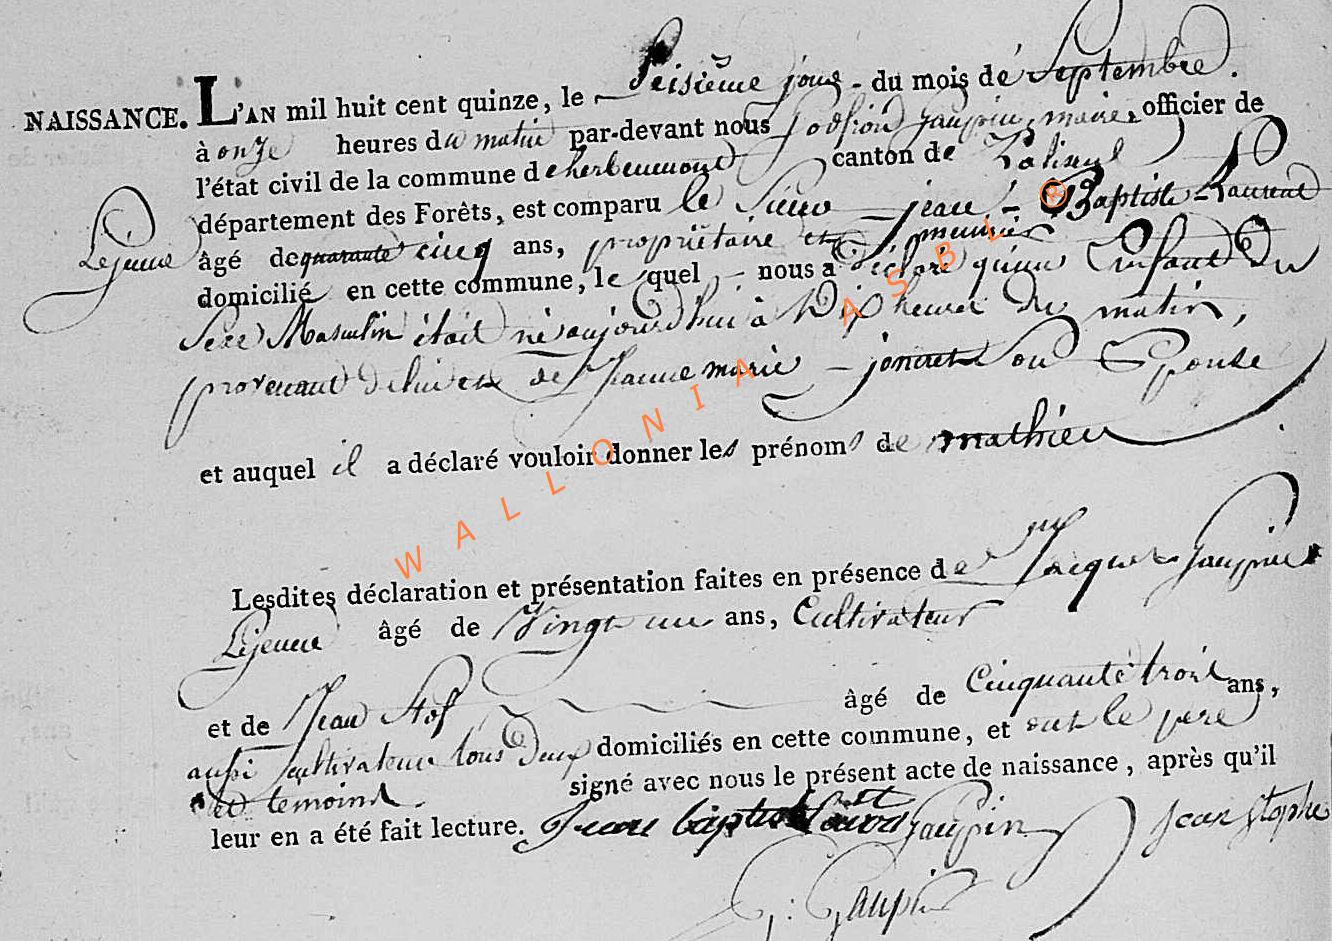 NAISSANCE. L'AN mil huit cent quinze, le Seisiême jour - du mois de Septembre.
à onze heures du matin par-devant nous Godfroid Jaupin, maire, officier de
l'état civil de la commune d herbeumont canton de Paliseul
département des Forêts, est comparu le Sieur - jean - Baptiste Laurent
Lejeune âgé de quarante cinq ans, propriétaire et meunier
domicilié en cette commune, le quel - nous a déclaré qu'un Enfant du
Sexe Masculin était né aujourd'hui à Dix heures du matin,
provenant de lui et de Jeanne marie - son Epouse
et auquel il a déclaré vouloir donner les prénoms de mathieu
Lesdites déclaration et présentation faites en présence de Jacques Jaupin
Lejeune âgé de Vingt un ans, Cultivateur
et de Jean Stof âgé de Cinquante trois ans,
aussi cultivateur tous deux domiciliés en cette commune, et ont le père
et témoins signé avec nous le présent acte de naissance, après qu'il
leur en a été fait lecture. Jean baptiste Jaupin Jean Stophe
G: Jaupin
WALLONIA ASBL ®